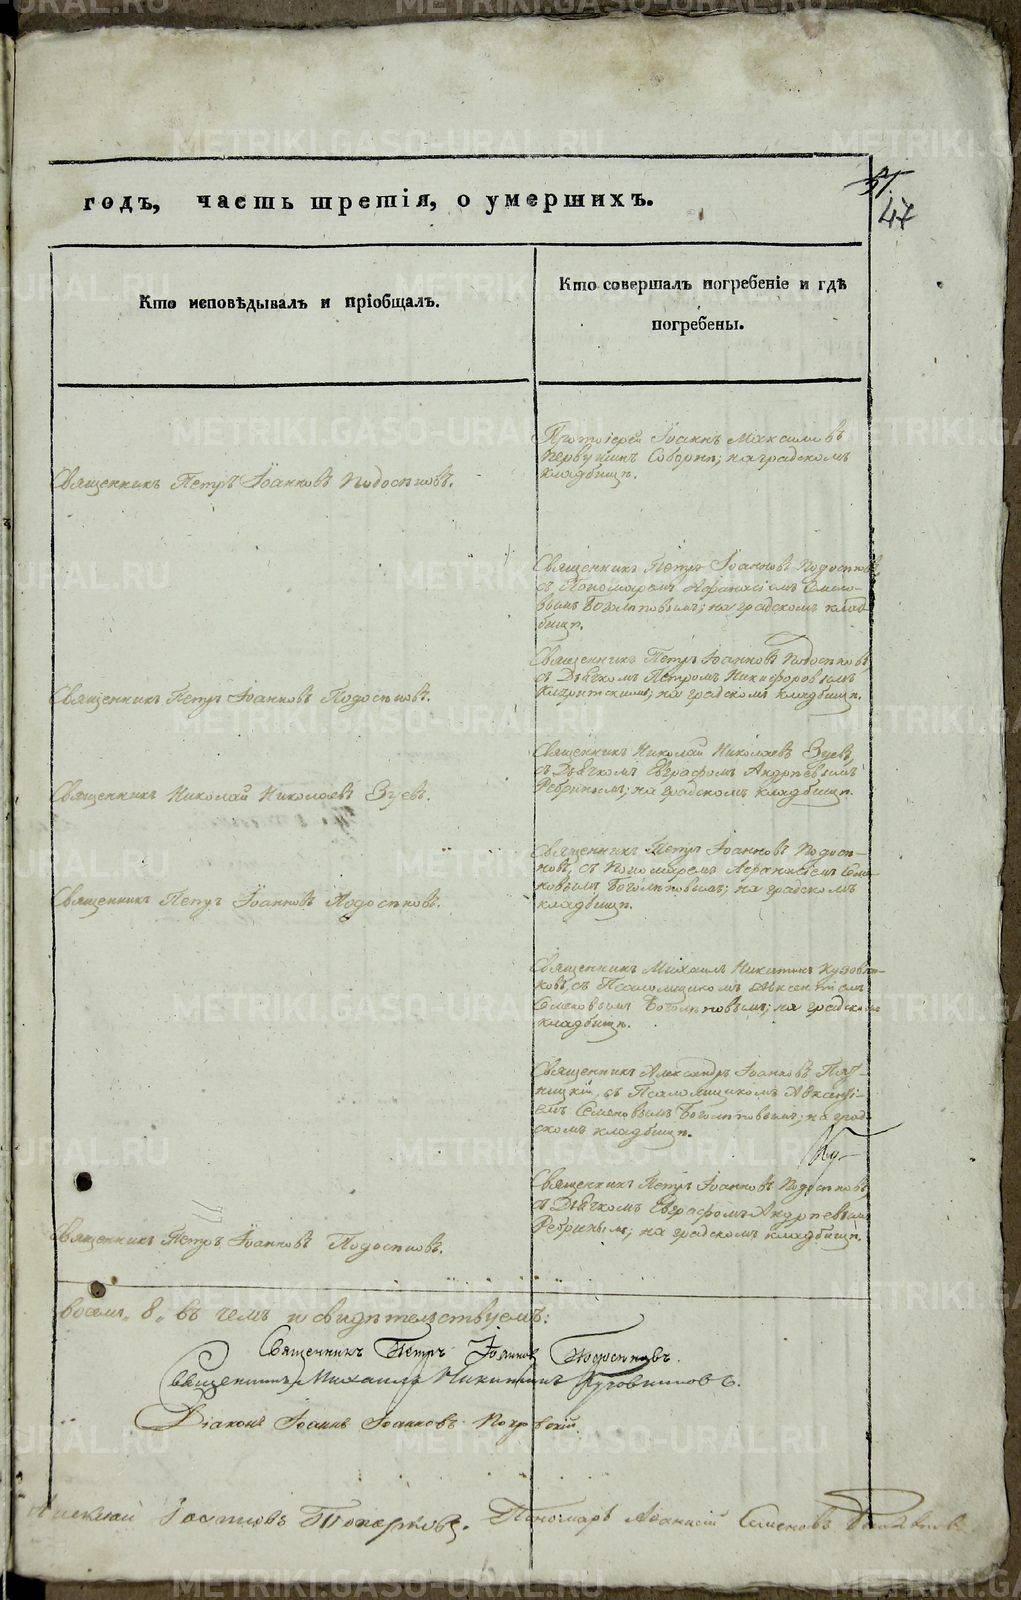 годъ, часть третія, о умершихъ.
47
Кто исповѣдывалъ и пріобщалъ.
Кто совершалъ погребеніе и гдѣ
погребены.
Протоіерей Іоаннъ Максимовъ
Первушинъ Соборнѣ; на градскомъ
кладбищѣ.
Священникъ Петръ Іоанновъ Подосеновъ.
Священникъ Петръ Іоанновъ Подосеновъ
съ Пономаремъ Афанасіемъ Семено-
вымъ Боголеповымъ; на градскомъ клад-
бищѣ.
Священникъ Петръ Іоанновъ Подосеновъ
съ Дьячкомъ Петромъ Никифоровымъ
на градскомъ кладбищѣ.
Священникъ Петръ Іоанновъ Подосеновъ.
Священникъ Николай Николаевъ Зуевъ,
съ Дьячкомъ Евграфомъ Андреевымъ
Ребринымъ; на градскомъ кладбищѣ.
Священникъ Николай Николаевъ Зуевъ.
Священникъ Петръ Іоанновъ Подосе-
новъ, съ Пономаремъ Афанасіемъ Семе-
новымъ Боголеповымъ; на градскомъ
кладбищѣ.
Священникъ Петръ Іоанновъ Подосеновъ.
Священникъ Михаилъ Никитинъ Кузовни-
ковъ, съ Псаломщикомъ Авксентіемъ
Семеновымъ Боголеповымъ; на градскомъ
кладбищѣ.
Священникъ Александръ Іоанновъ Пят-
ницкій, съ Псаломщикомъ Авксенті-
емъ Семеновымъ Боголеповымъ; на град-
скомъ кладбищѣ.
Священникъ Петръ Іоанновъ Подосеновъ,
съ Дьячкомъ Евграфомъ Андреевымъ
Ребринымъ; на градскомъ кладбищѣ.
Священникъ Петръ Іоанновъ Подосеновъ.
восемь „8„ въ чемъ и свидѣтельствуемъ:
Священникъ Петръ Іоанновъ Подосеновъ.
Священникъ Михаилъ Никитинъ Кузовниковъ.
Діаконъ Іоаннъ Іоанновъ Покровскій.
Топорковъ. Пономарь Афанасій Семеновъ Боголеповъ
METRIKI.GASO-URAL.RU